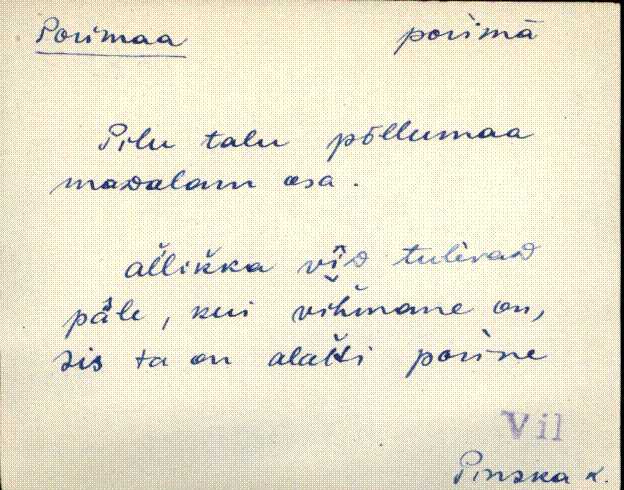 Porimaa porimā
Pilu talu põllumaa
madalam osa.
al̆likka vīd tulevad
päle, kui vihmane on,
sis ta on alat̆ti porine
Vil
Pinska k.